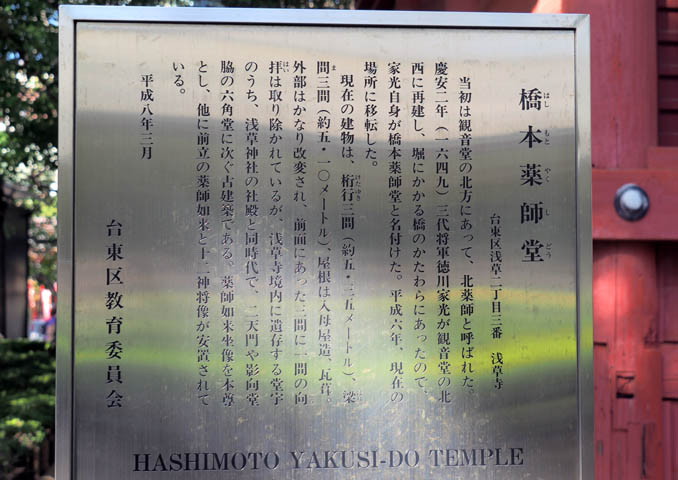 橋本薬師堂
はし もと やく し どう
台東区浅草二丁目三番 浅草寺
当初は観音堂の北方にあって、北薬師と呼ばれた。
慶安二年（一六四九）三代将軍徳川家光が観音堂の北
西に再建し、堀にかかる橋のかたわらにあったので、
家光自身が橋本薬師堂と名付けた。平成六年、現在の
場所に移転した。
現在の建物は、桁行三間（約五・三五メートル）、梁
けたゆき はり
間三間（約五・一〇メートル）、屋根は入母屋造、瓦葺。
ま
外部はかなり改変され、前面にあった三間に一間の向
拝は取り除かれているが、浅草寺境内に遺存する堂宇
はい
のうち、浅草神社の社殿と同時代で、二天門や影向堂
脇の六角堂に次ぐ古建築である。薬師如来坐像を本尊
とし、他に前立の薬師如来と十二神将像が安置されて
いる。
平成八年三月
台東区教育委員会
HASHIMOTO YAKUSI-DO TEMPLE